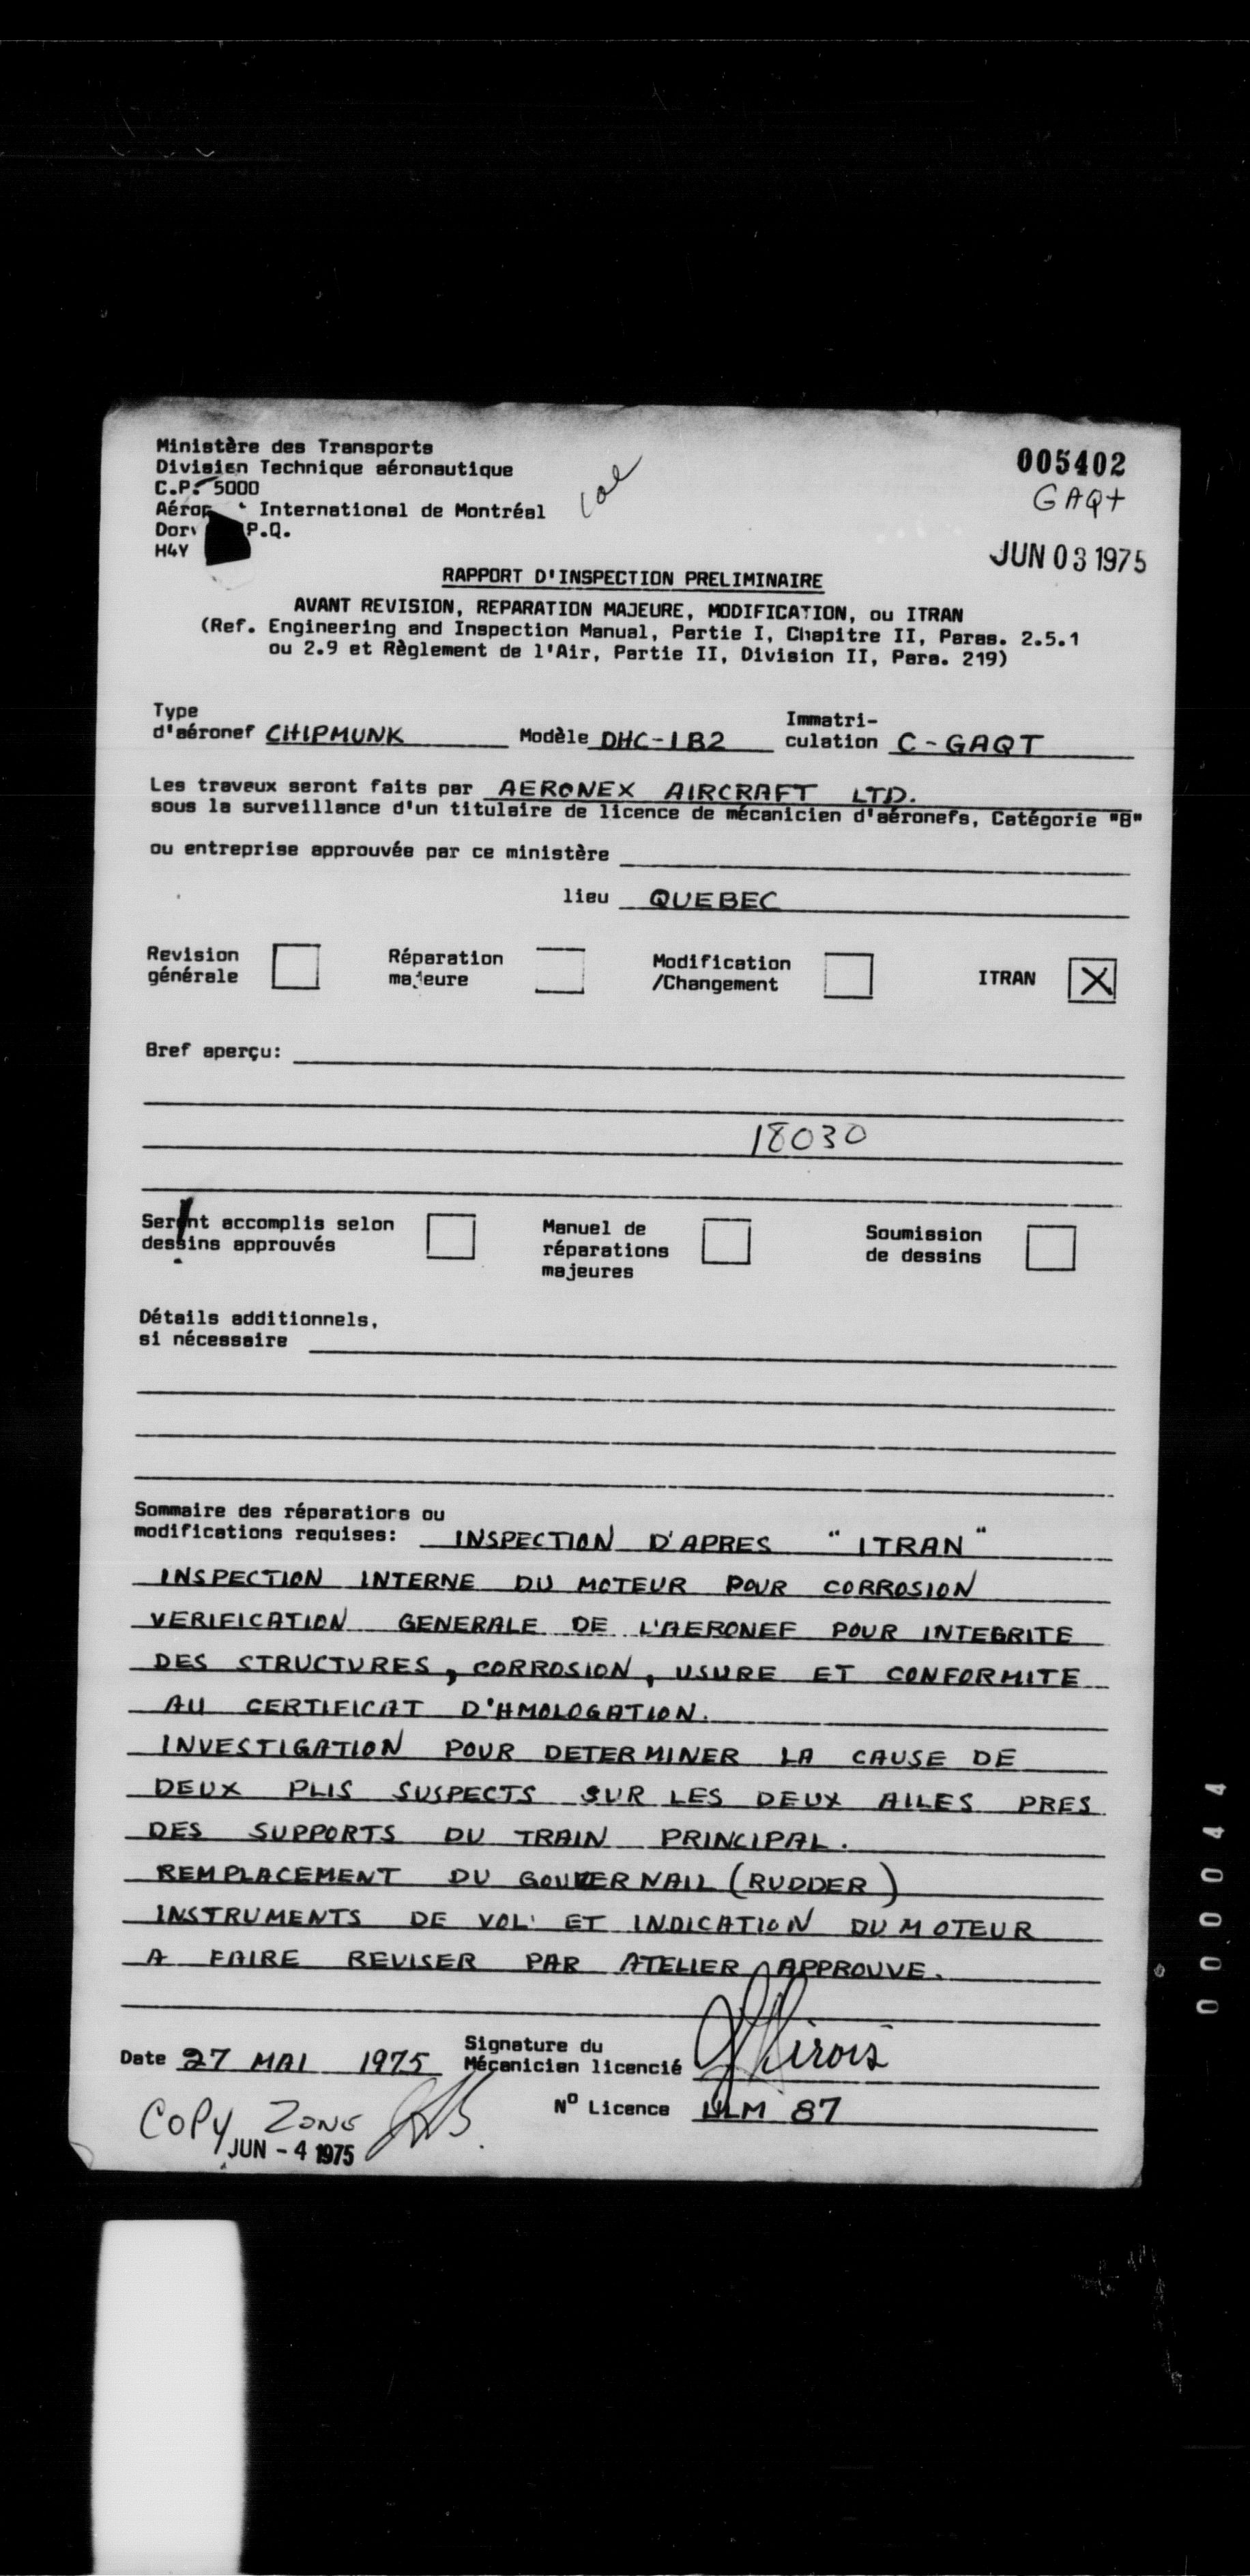 Ministère des Transports
Division Technique aéronautique
005402
C.P. 5000
GAQT
International de Montréal
P.Q.
H4Y
JUN 03 1975
RAPPORT D'INSPECTION PRELIMINAIRE
AVANT REVISION, REPARATION MAJEURE, MODIFICATION, ou ITRAN
(Ref. Engineering and Inspection Manual, Partie I, Chapitre II, Paras. 2.5.1
ou 2.9 et Règlement de l'Air, Partie II, Division II, Para. 219)
Type
d'aéronef CHIPMUNK Modèle DHC-1B2 Immatri-
culation C-GAQT
Les travaux seront faits par AERONEX AIRCRAFT LTD.
sous la surveillance d'un titulaire de licence de mécanicien d'aéronefs, Catégorie "B"
ou entreprise approuvée par ce ministère
lieu QUEBEC
Revision
générale
Réparation
majeure
Modification
/Changement
ITRAN X
Bref aperçu:
18030
Seront accomplis selon
dessins approuvés
Manuel de
réparations
majeures
Soumission
de dessins
Détails additionnels,
si nécessaire
Sommaire des réparations ou
modifications requises: INSPECTION D'APRES "ITRAN"
INSPECTION INTERNE DU MOTEUR POUR CORROSION
VERIFICATION GENERALE DE L'AERONEF POUR INTEGRITE
DES STRUCTURES, CORROSION, USURE ET CONFORMITE
AU CERTIFICAT D'HMOLOGATION.
INVESTIGATION POUR DETERMINER LA CAUSE DE
DEUX PLIS SUSPECTS SUR LES DEUX AILES PRES
DES SUPPORTS DU TRAIN PRINCIPAL.
REMPLACEMENT DU GOUVERNAIL (RUDDER)
INSTRUMENTS DE VOL ET INDICATION DU MOTEUR
A FAIRE REVISER PAR ATELIER APPROUVE.
Date 27 MAI 1975
Signature du
Mécanicien licencié Sirois
Nº Licence ULM 87
COPY ZONE
JUN - 4 1975
000044